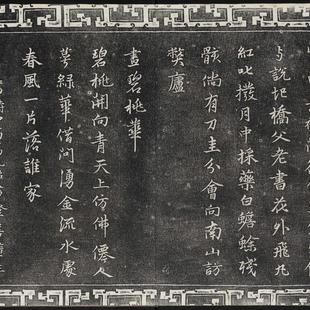 与說圯橋父老書花外飛丸
紅叱撥月中採藥白蟾蜍殘
骸倘有刀圭分會向南山訪
獘廬
畫碧桃華
碧桃開向青天上仿佛僊人
萼綠華借問湧金流水處
春風一片落誰家